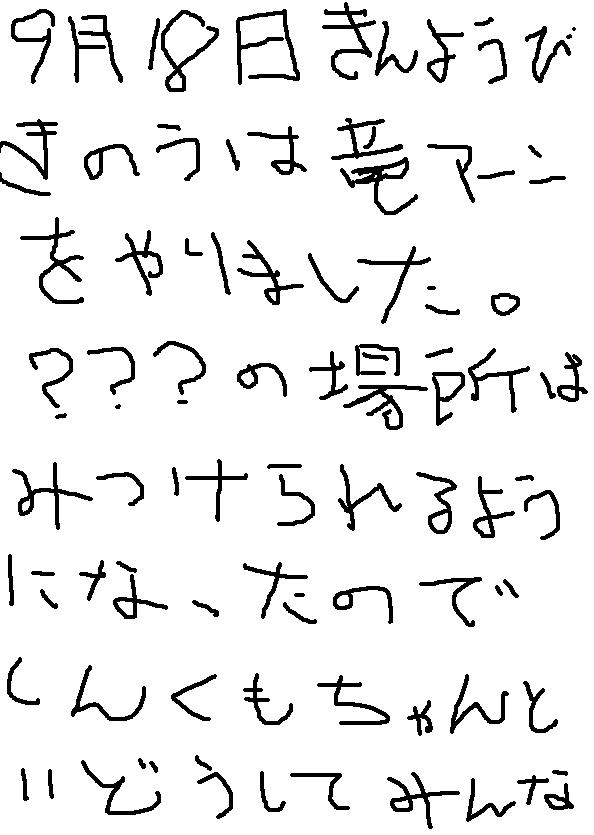 9月18日きんようび
きのうは竜マーン
をやりました。
???の場所は
みつけられるよう
になったので
しんくもちゃんと
いどうしてみんな